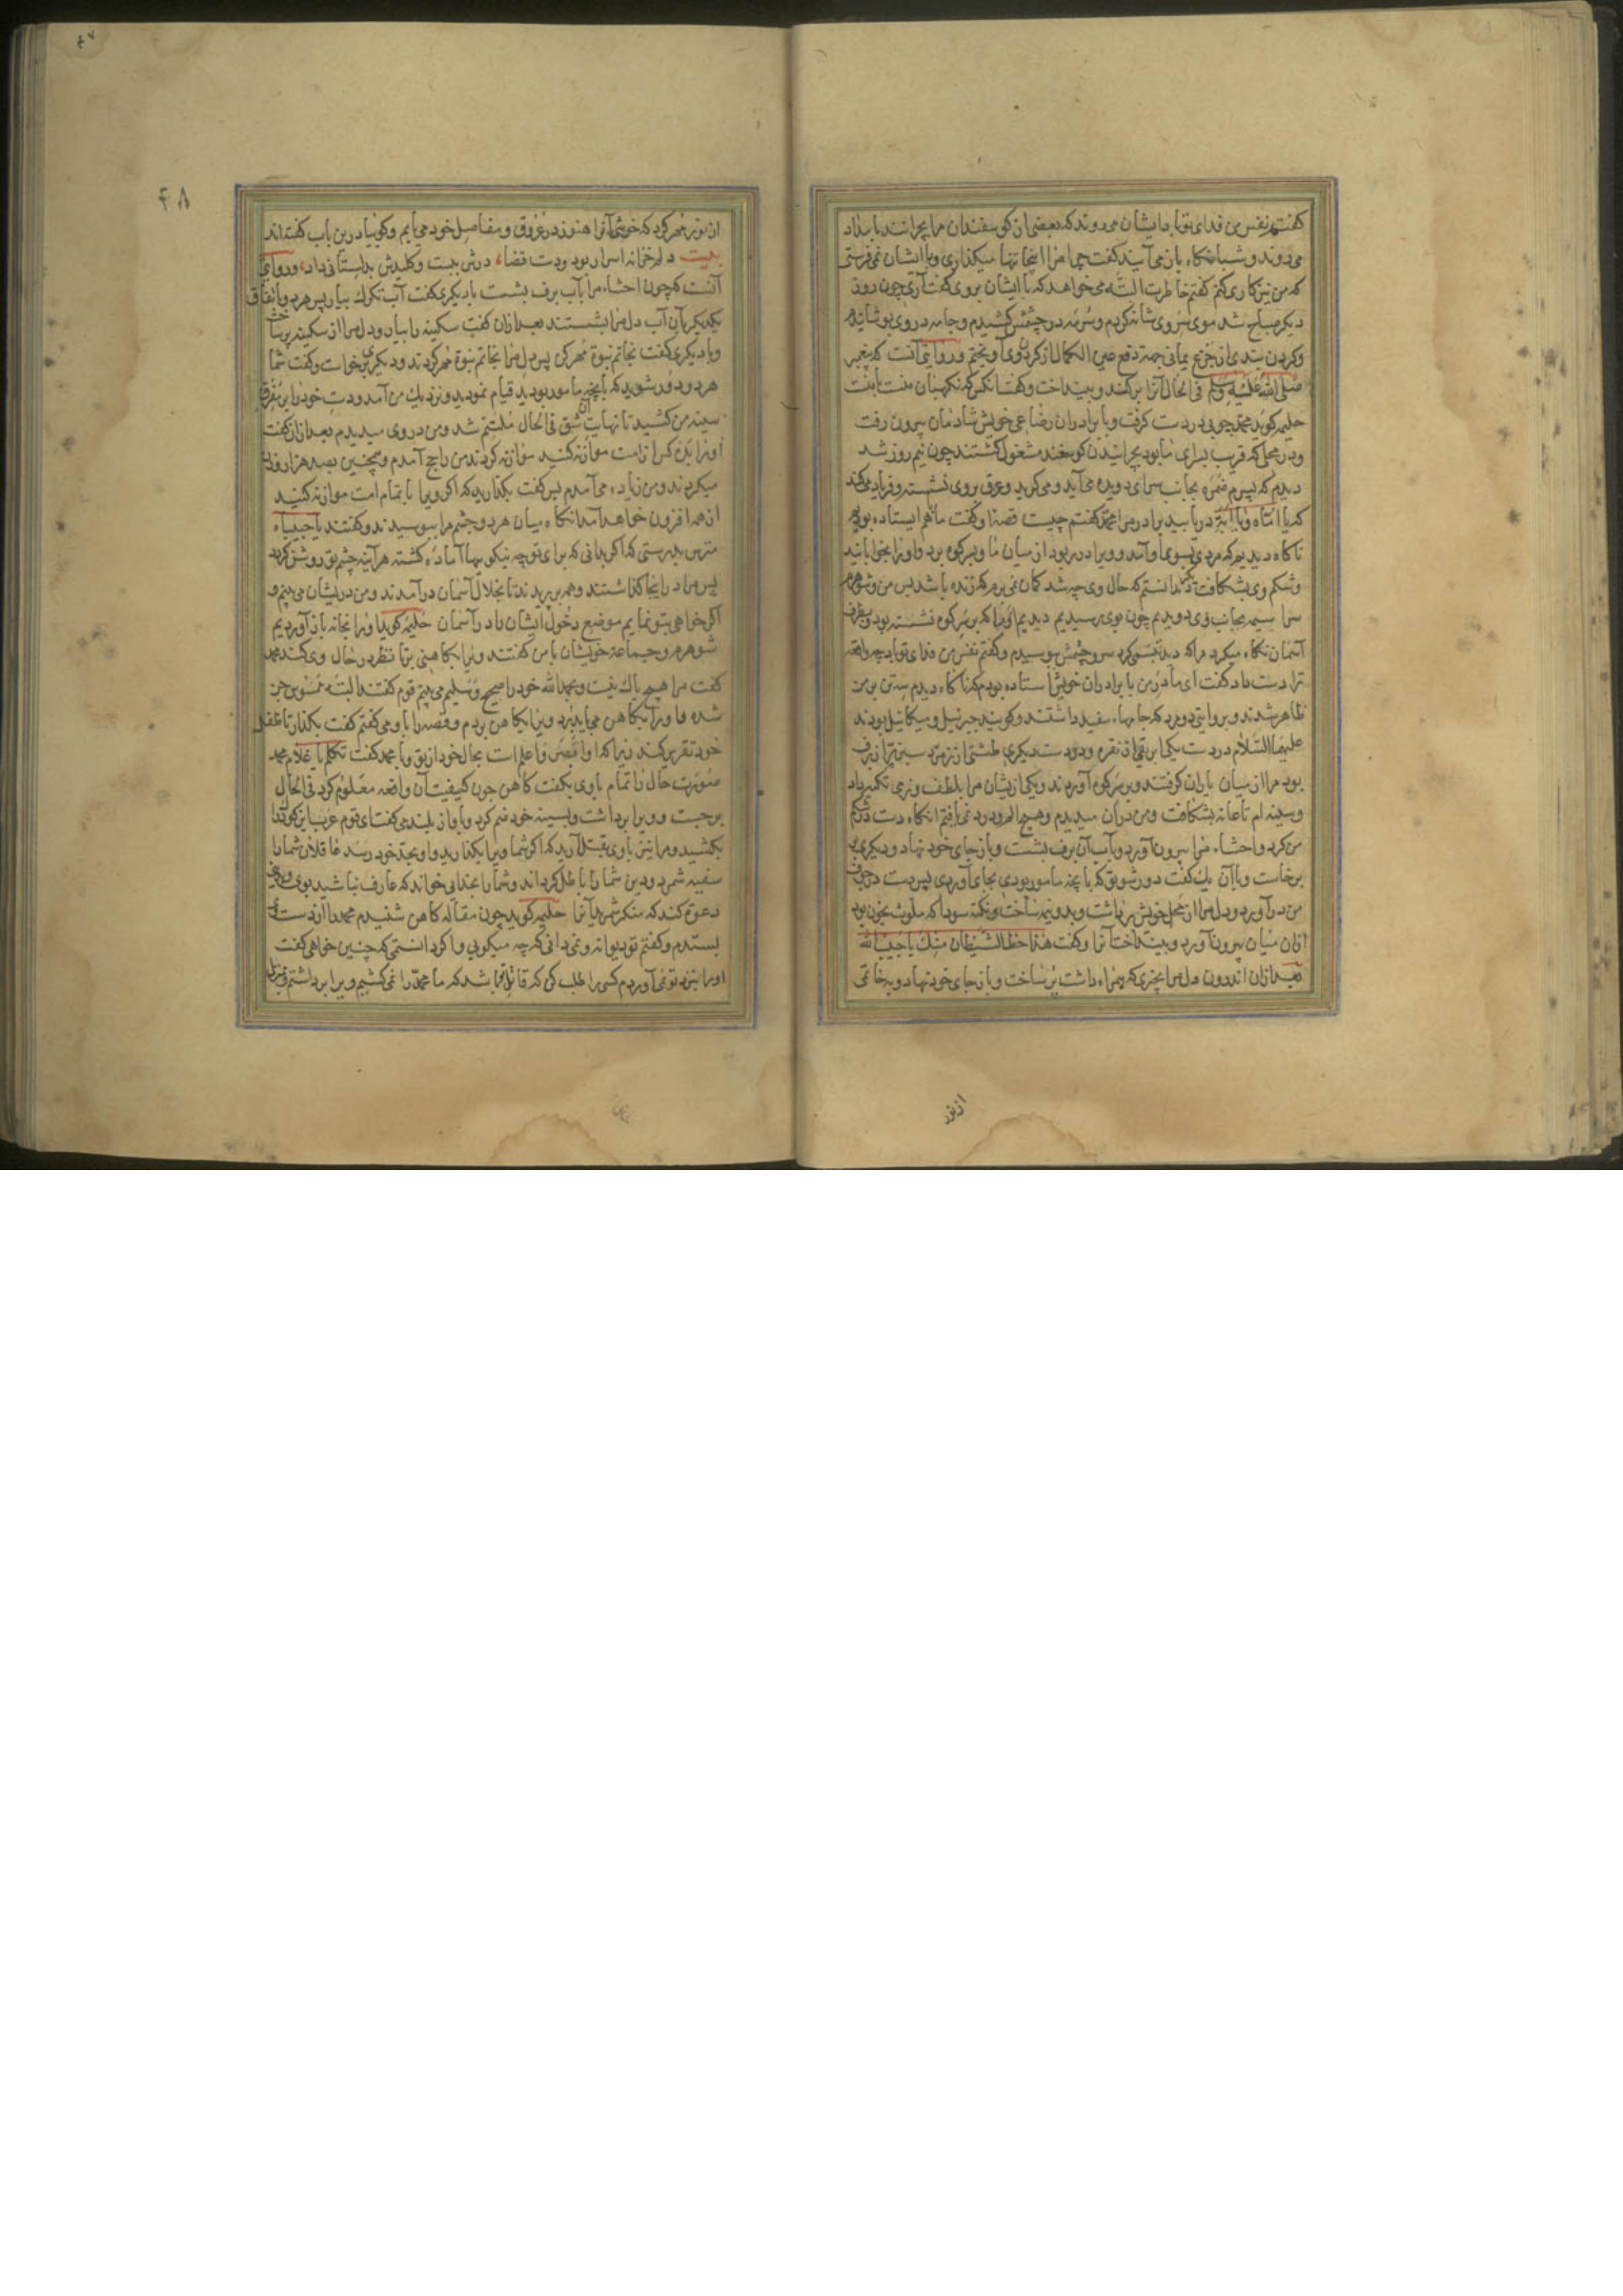 کفتم نفس من فدای تو باد ایشان می روند که بعضی از کوسفندان مرا بچرانند بامداد
می روند و شبانکاه باز می آیند کفت چرا مرا اینجا تنها میکذاری و با ایشان نمی فرستی
که من نیز کاری کنم کفتم خاطرت البته می خواهد که با ایشان بروی کفت آری چون روز
دیکر صباح شد موی سر وی شانه کردم و سرمه در چشمش کشیدم و جامه در وی پوشانیدم
و کردن بندی از جزع یمانی جهة دفع عین الکمال از کردن وی آویختم و روایتی آنست که پیغمبر
صلی الله علیه وسلم فی الحال آنرا برکند و بینداخت و کفت آنکس که نکهبان منست با منست
حلیمه کوید محمد چوبی در دست کرفت و با برادران رضاعی خویش شادمان بیرون رفت
و در محلی که قریب بسرای ما بود بچرانیدن کوسفند مشغول کشتند چون نیم روز شد
دیدم که پسرم ضمره بجانب سرای دویده می آید و می کرید و عرق بروی نشسته و فریاد می کند
که یا امتاه و یا ابتاه دریابید برادرم را محمد کفتم چیست قصه او کفت ما بهم ایستاده بودیم
ناکاه دیدیم که مردی بسوی ما آمد و ویرا در ربود از میان ما و بسر کوه برد و اورا بخوابانید
و شکم وی بشکافت دیکر ندانستم که حال وی چه شد کمان نمی برم که زنده باشد پس من و شوهرم
سراسیمه بجانب وی دویدیم چون بوی رسیدیم دیدیم اورا که بر سر کوه نشسته بود و بطرف
آسمان نکاه میکرد مرا که دید تبسم کرد سر و چشمش بوسیدم و کفتم نفس من فدای تو باد چه واقعه
ترا دست داد کفت ای مادر من با برادران خویش استاده بودم که ناکاه دیدم سه تن بر من
ظاهر شدند و بروایتی دو مرد که جامهاء سفید داشتند و کویند جبرئیل و میکائیل بودند
علیهما السلام در دست یکی ابریقی از نقره و در دست دیکری طشتی از زمرد سبز پر از برف
بود مرا از میان یاران کرفتند و بر سر کوه آوردند و یکی از ایشان مرا بلطف و نرمی تکیه داد
و سینه ام تا عانه بشکافت و من در آن میدیدم و هیچ الم و درد نمی یافتم آنکاه دست در شکم
من کرد و احشاء مرا بیرون آورد و بآب آن برف بشست و باز جای خود نهاد و دیکری
برخاست و با آن یک کفت دور شو تو که بآنچه مامور بودی بجای آوردی پس دست در جوف
من در آورد و دل مرا از محل خویش برداشت و بدو نیمه ساخت و نکته سودا که ملوث بخون بود
از آن میان بیرون آورد و بینداخت آنرا و کفت هذا حظ الشیطان منک یا حبیب الله
بعد از آن اندرون دل مرا بچیزی که همراه داشت پر ساخت و باز جای خود نهاد و بخاتمی
از نور
۴۸
از نور مهر کرد که خوشی آنرا هنوز در عروق و مفاصل خود می یابم و کوییا درین باب کفته اند
بیت دلم خزانه اسرار بود و دست قضا درش ببست و کلیدش بدلستانی داد و روایتی
آنست که چون احشاء مرا بآب برف بشست با دیکری کفت آب تکرک بیار پس هر دو باتفاق
یکدیکر بآن آب دل مرا بشستند بعد از آن کفت سکینه را بیار و دل مرا از سکینه پر ساخت
و با دیکری کفت بخاتم نبوة مهر کن پس دل مرا بخاتم نبوة مهر کردند و دیکری برخاست و کفت شما
هر دو دور شوید که بآنچه مامور بودید قیام نمودید و نزدیک من آمد و دست خود را بر مفرق
سینه من کشید تا نهایت آن شق فی الحال ملتئم شد و من در وی میدیدم بعد از آن کفت
اورا با ده کس از امت موازنه کنید موازنه کردند من راجح آمدم و همچنین بصد هزار وزن
میکردند و من زیاده می آمدم پس کفت بکذارید که اکر ویرا با تمام امت موازنه کنید
از همه افزون خواهد آمد آنکاه میان هر دو چشم مرا ببوسیدند و کفتند یا حبیباه
مترس بدرستی که اکر بدانی که برای تو چه نیکویها آماده کشته هر آینه چشم تو روشن کردد
پس مرا در اینجا کذاشتند و هم بپریدند تا بخلال آسمان در آمدند و من در ایشان می بینم و
اکر خواهی بتو نمایم موضع دخول ایشان را در آسمان حلیمه کوید اورا بخانه باز آوردیم
شوهرم و جماعة خویشان با من کفتند ویرا بکاهنی بر تا نظر در حال وی کند محمد
کفت مرا هیچ باک نیست و بحمد الله خود را صحیح و سلیم می بینم قوم کفتند البته ممسوس جن
شده و اورا بکاهن می باید برد ویرا بکاهن بردم و قصه را با وی کفتم کفت بکذار تا طفل
خود تقریر کند زیرا که او اقصر و اعلم است بحال خود از تو و با محمد کفت تکلم یا غلام محمد
صورت حال را تمام با وی بکفت کاهن چون کیفیت آن واقعه معلوم کرد فی الحال
برجست و ویرا برداشت و بسینه خود ضم کرد و بآواز بلند می کفت ای قوم عرب این کودک را
بکشید و مرا نیز با وی بقتل آرید که اکر شما ویرا بکذارید و او بحد خود رسد عاقلان شما را
سفیه شمرد و دین شما را باطل کرداند و شما را بخدایی خواند که عارف نباشید بوی و بدینی
دعوة کند که منکر شمرید آنرا حلیمه کوید چون مقاله کاهن شنیدم محمد را از دست وی
بستدم و کفتم تو دیوانه و نمی دانی که چه میکویی و اکر دانستمی که چنین خواهی کفت
اورا بنزد تو نمی آوردم کسی را طلب کن که قاتل تو باشد که ما محمد را نمی کشیم ویرا برداشتم و بمنزل